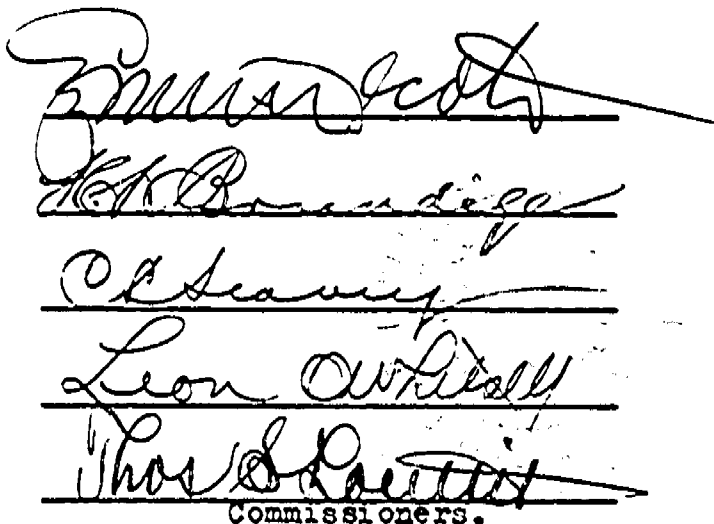 H. W. Brundige
C. Seavey
Leon O Whitsell
Thos S Louttit
Commissioners.